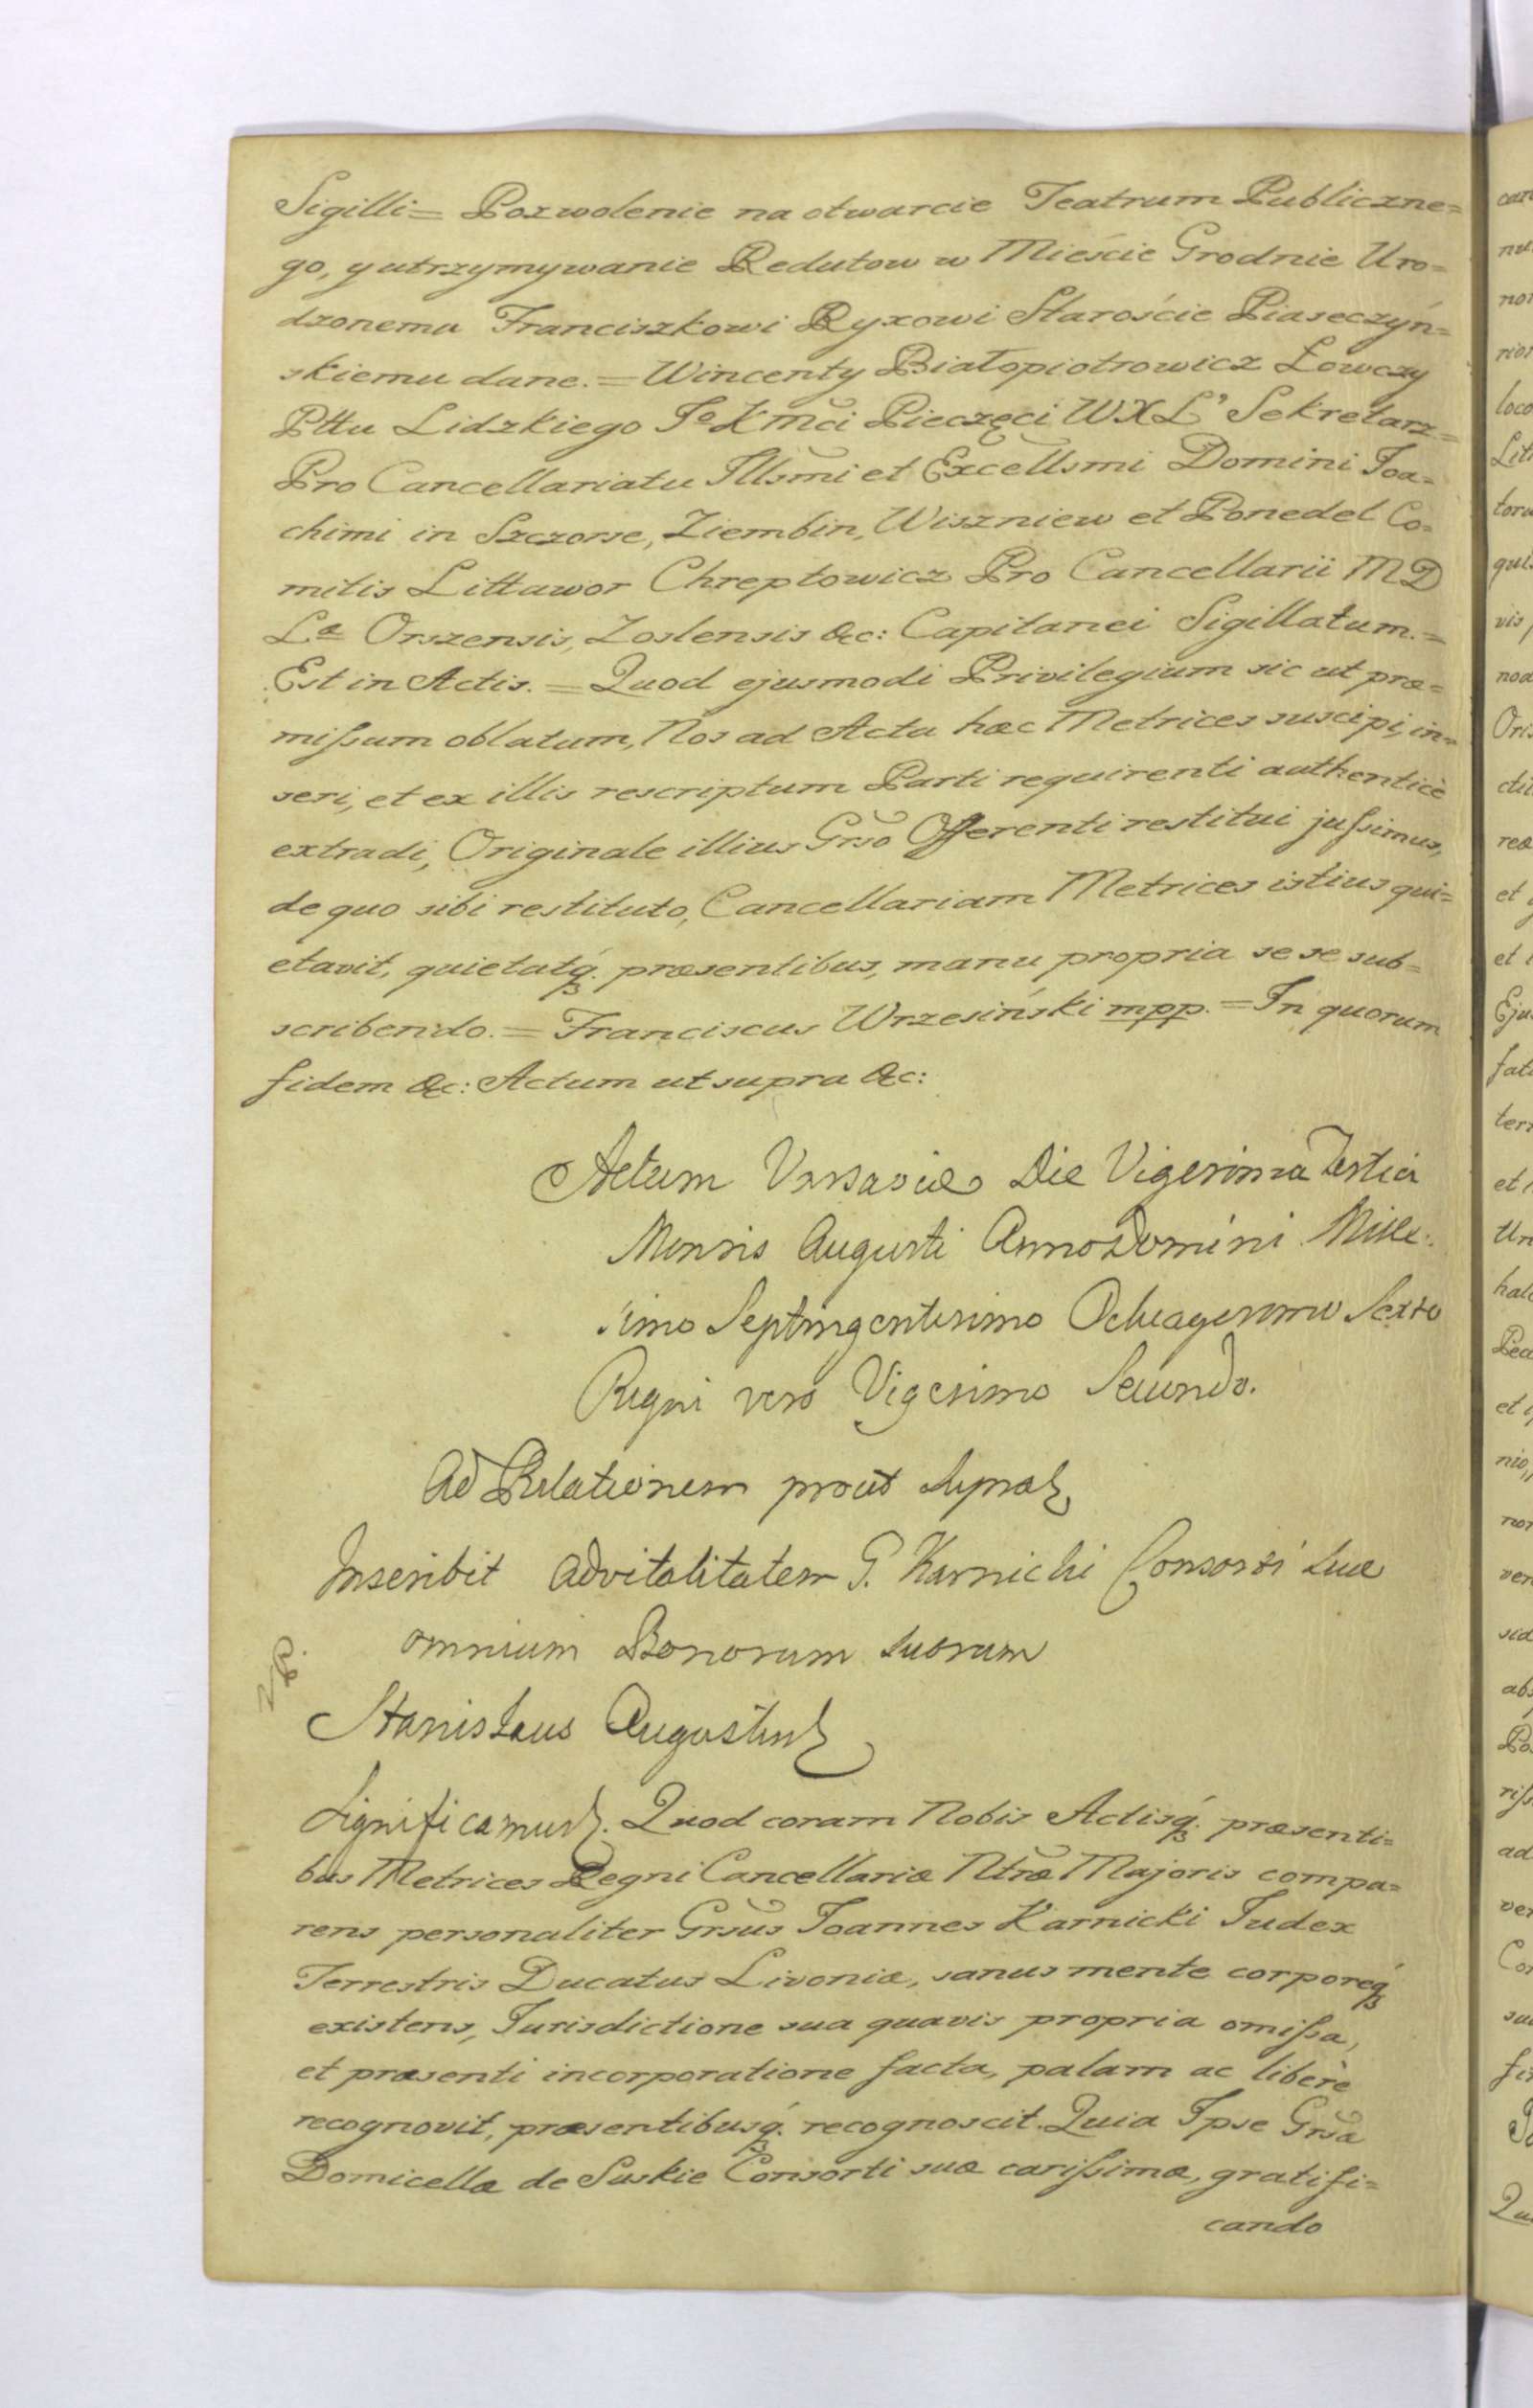 Sigilli = Pozwolenie na otwarcie Teatrum Publiczne=
go, y utrzymywanie Redutow w Mieście Grodnie Uro=
dzonemu Franciszkowi Ryxowi Staroście Piaseczyń=
skiemu dane. = Wincenty Białopiotrowicz Łowczy
Pttu Lidzkiego Jo K mci Pieczęci W X L' Sekretarz =
Pro Cancellariatu Illsmi et Excellsmi Domini Joa=
chimi in Szczorse, Ziembin, Wiszniew et Ponedel Co=
mitis Littawor Chreptowicz Pro Cancellarii M D
Læ Orszensis, Zoslensis &c: Capitanei Sigillatum. =
Est in Actis. = Quod ejusmodi Privilegium sic ut præ=
missum oblatum, Nos ad Acta hæc Metrices suscipi, in=
seri, et ex illis rescriptum Parti requirenti authenticè
extradi, Originale illius Grso Offerenti restitui jussimus,
de quo sibi restituto, Cancellariam Metrices istius qui=
etavit, quietatq. præsentibus, manu propria se se sub=
scribendo. = Franciscus Wrzesiński mpp. = In quorum
fidem &c: Actum ut supra &c:
Actum Varsaviæ Die Vigesima Tertia
Mensis Augusti Anno Domini Mille-
simo Septingentesimo Octuagesimo Sexto
Regni vero Vigesimo Secundo.
Ad Relationem prout supra
Inscribit advitalitatem G. Karnicki Consorti suæ
omnium Bonorum suorum
Stanislaus Augustus
Significamus. Quod coram Nobis Actisq. præsenti=
bus Metrices Regni Cancellariæ Ntræ Majoris compa=
rens personaliter Grsus Joannes Karnicki Judex
Terrestris Ducatus Livoniæ, sanus mente corporeq
existens, Jurisdictione sua quavis propria omissa,
et præsenti incorporatione facta, palam ac liberè
recognovit, præsentibusq. recognoscit. Quia Ipse Grsa
Domicellæ de Suskie Consorti suæ carissimæ, gratifi=
cando